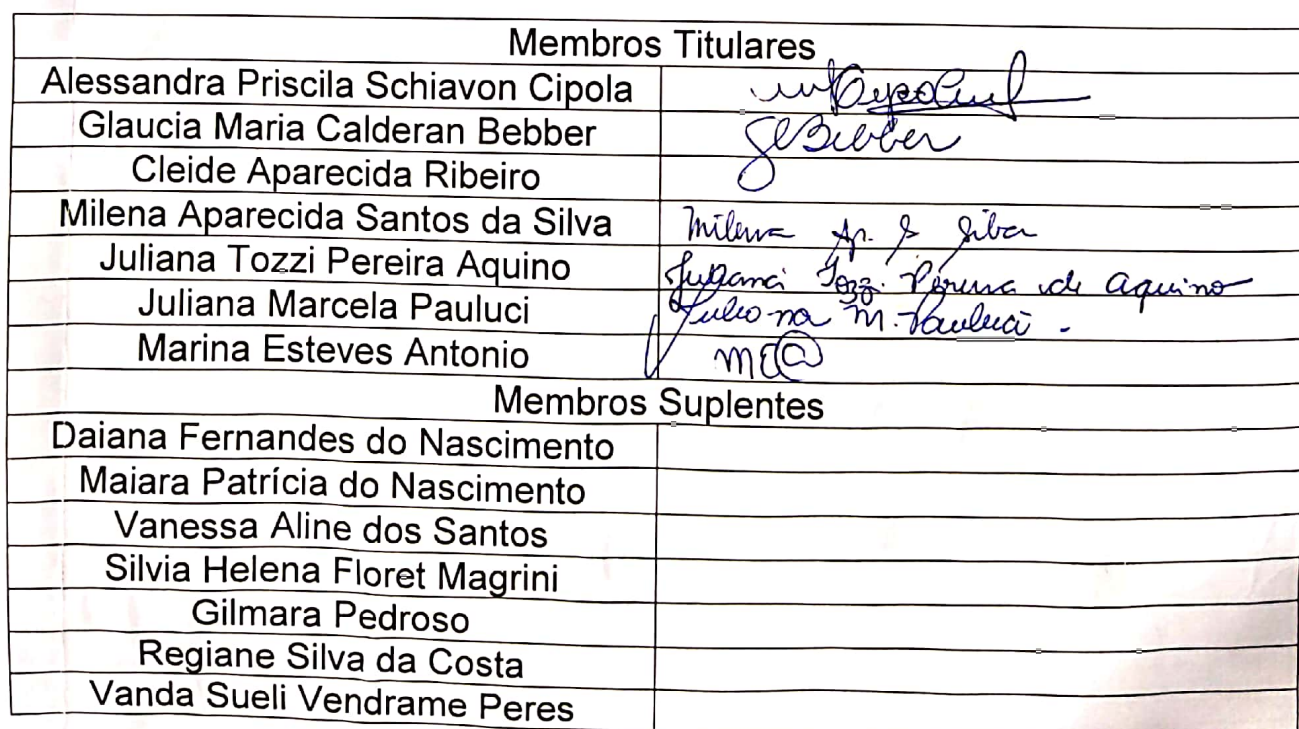 Membros Titulares
Alessandra Priscila Schiavon Cipola
Glaucia Maria Calderan Bebber GBebber
Cleide Aparecida Ribeiro
Milena Aparecida Santos da Silva Milena Ap. S Silva
Juliana Tozzi Pereira Aquino Juliana Tozzi Pereira de Aquino
Juliana Marcela Pauluci Juliana M. Pauluci.
Marina Esteves Antonio
Membros Suplentes
Daiana Fernandes do Nascimento
Maiara Patrícia do Nascimento
Vanessa Aline dos Santos
Silvia Helena Floret Magrini
Gilmara Pedroso
Regiane Silva da Costa
Vanda Sueli Vendrame Peres